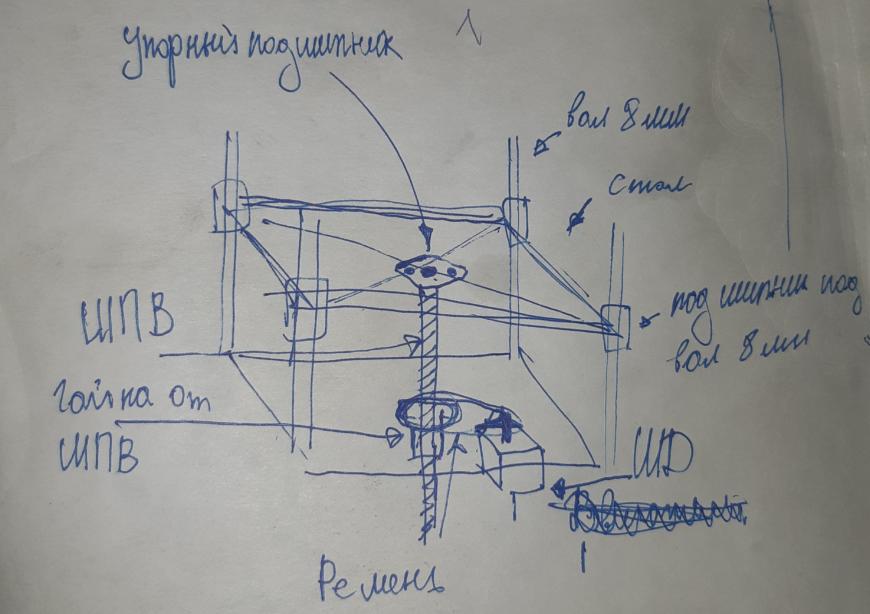 Упорный подшипник
вал 8мм
стол
ШПВ
подшипник под
вал 8мм
Гайка от
ШПВ
ШД
Ремень